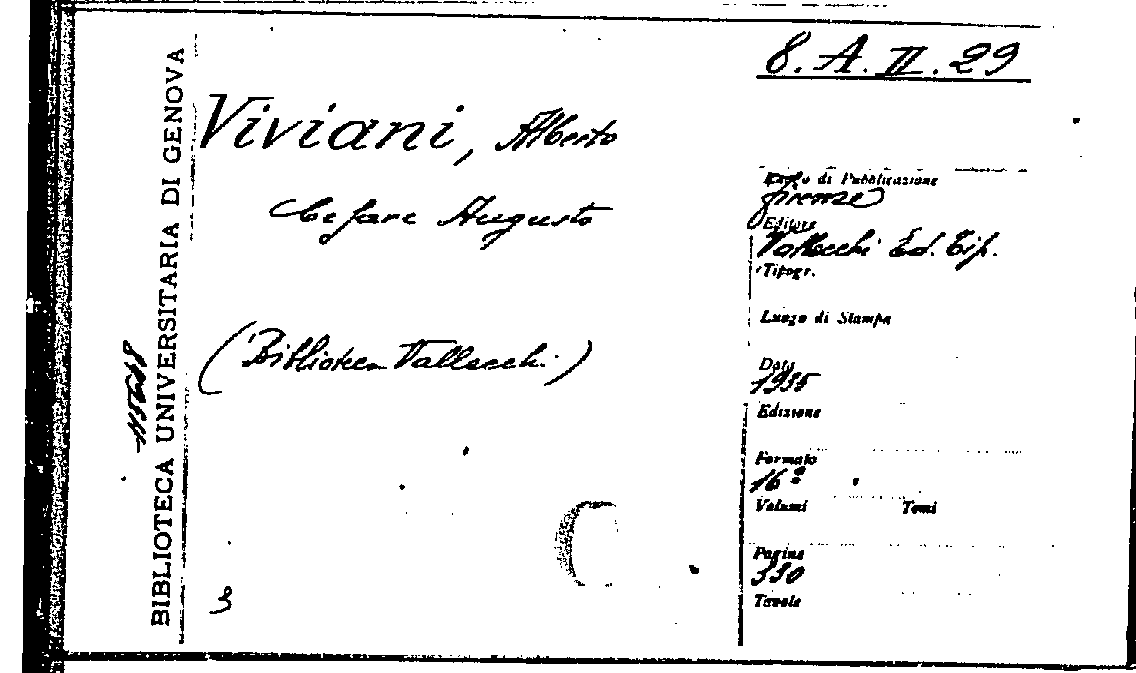 8. A. II. 29
BIBLIOTECA UNIVERSITARIA DI GENOVA
Viviani, Alberto
Cesare Augusto
(Biblioteca Vallecchi.)
3
Luogo di Pubblicazione
Firenze
Editore
Vallecchi Ed. Tip.
Tipogr.
Luogo di Stampa
Data
1935
Edizione
Formato
16º
Volumi Tomi
Pagine
330
Tavole